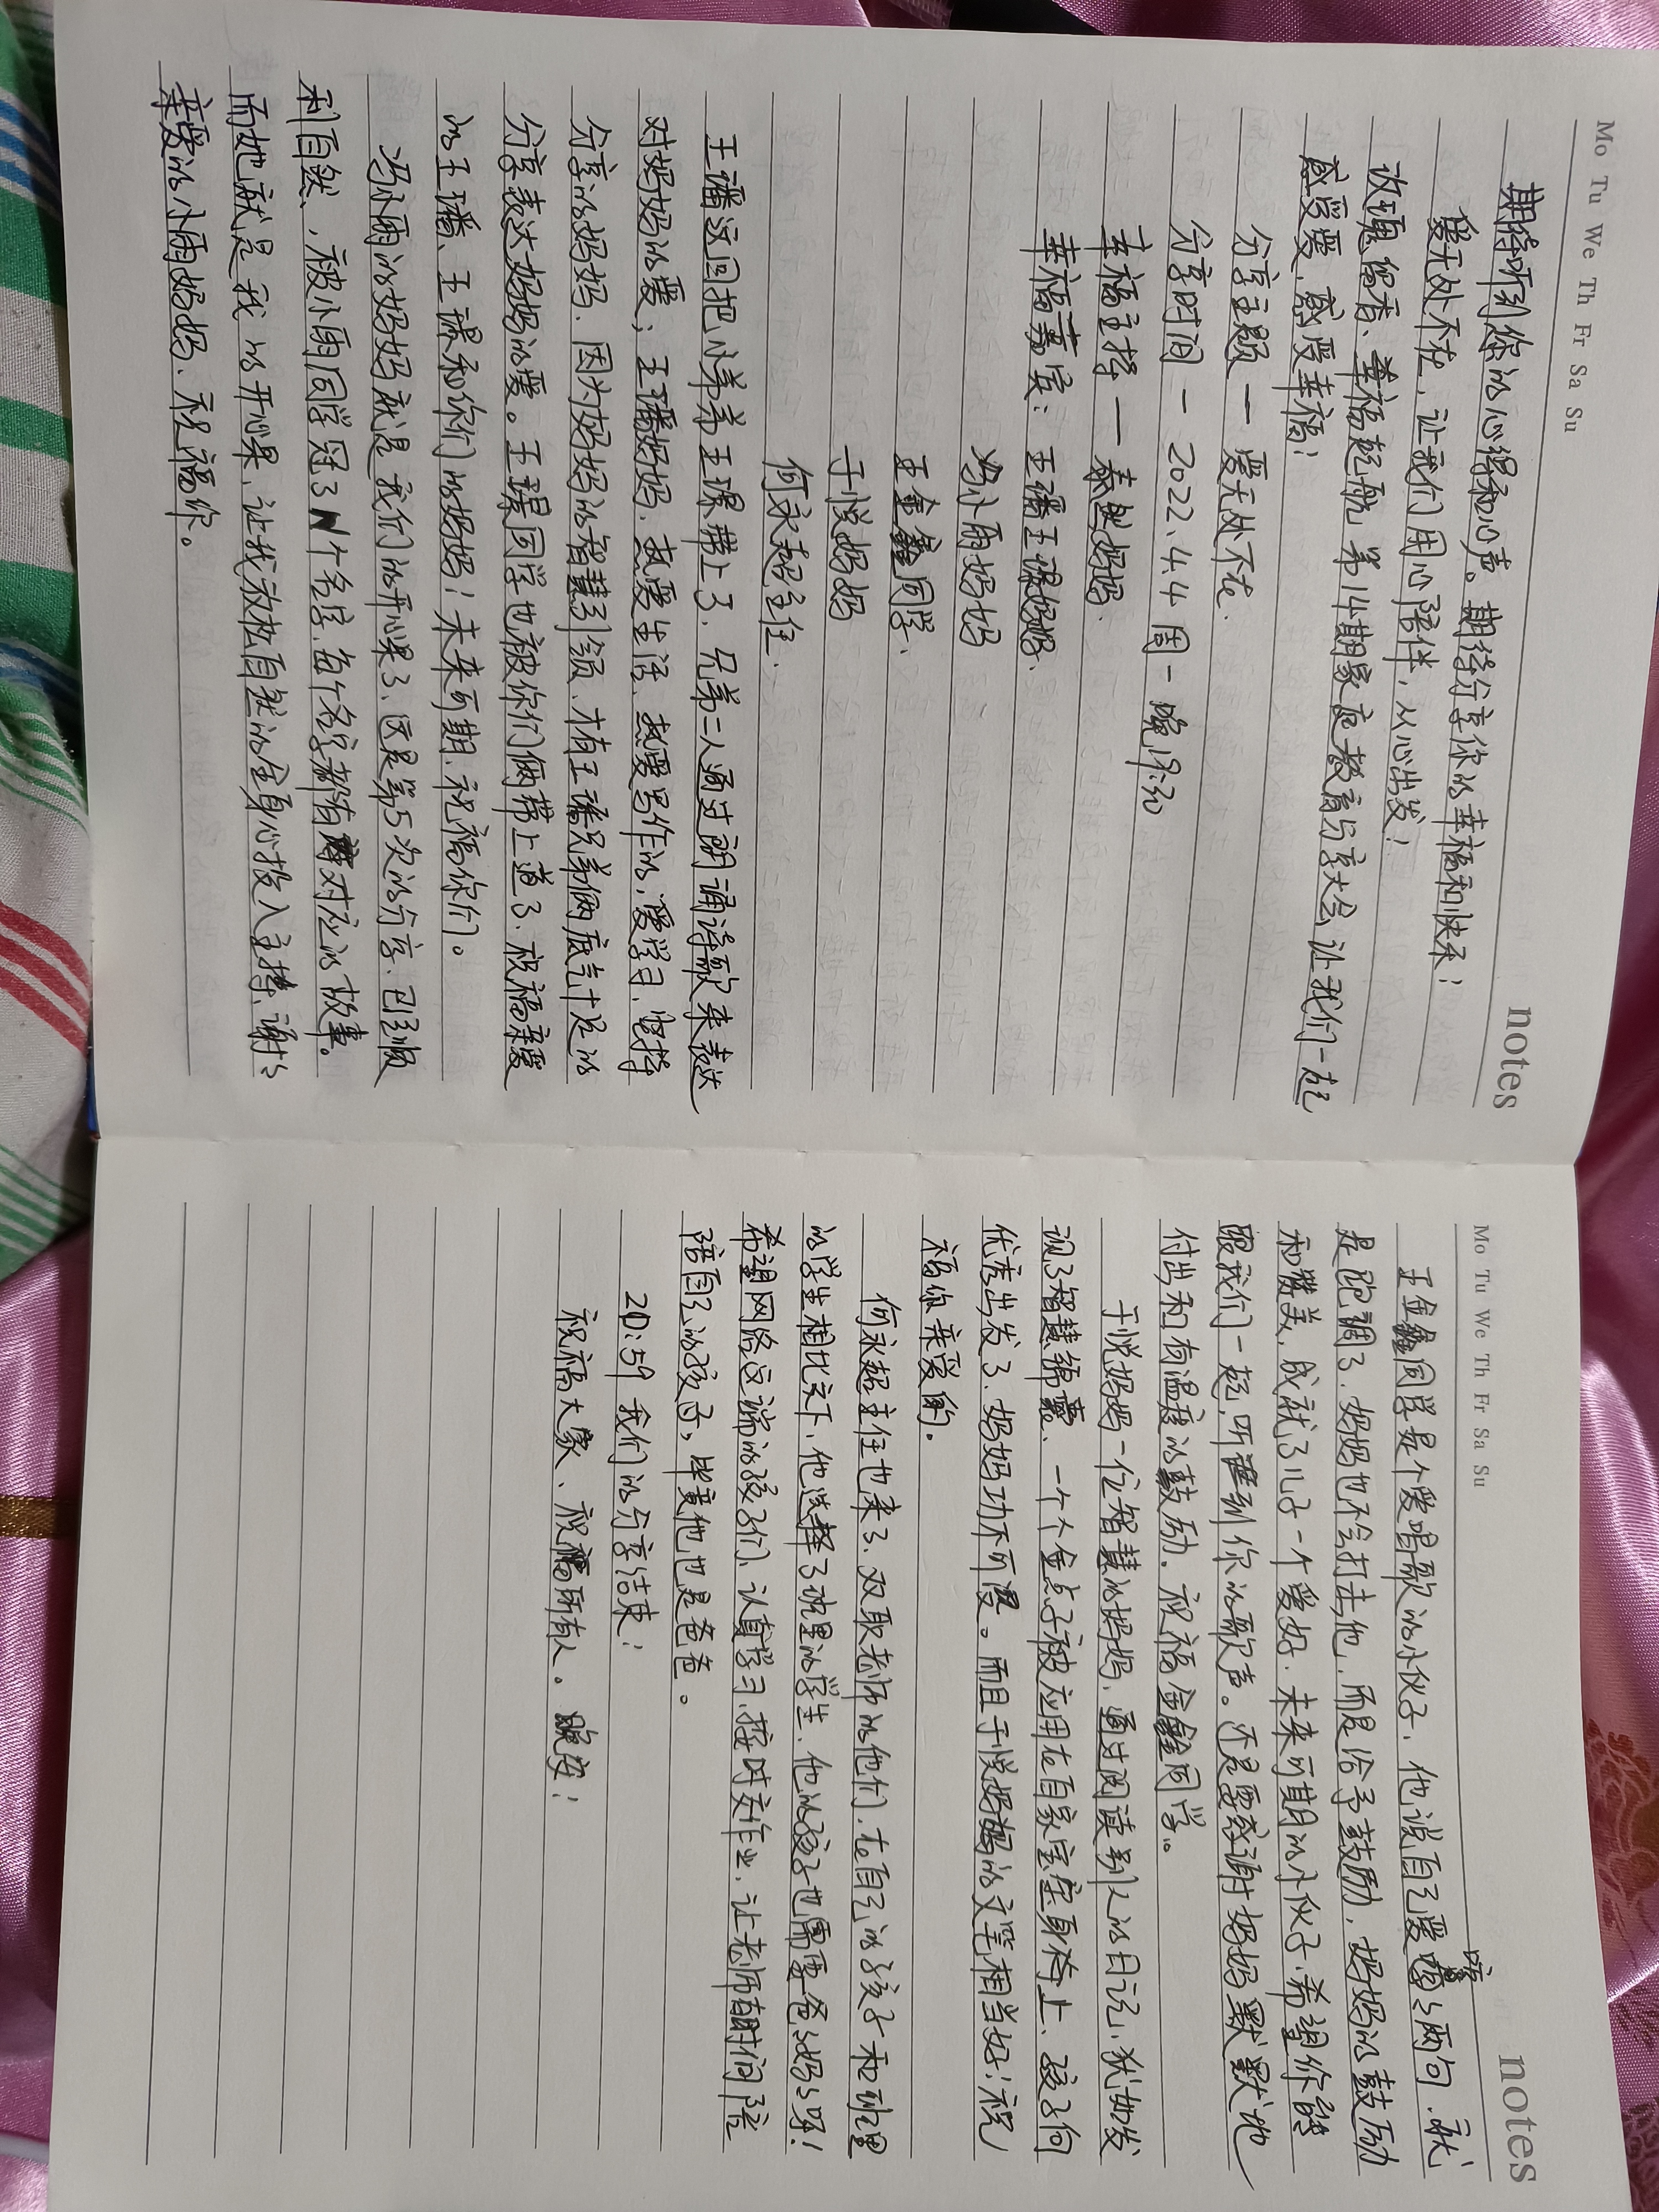 Mo Tu We Th Fr Sa Su
notes
期待听到你的心得和心声。期待分享你的幸福和快乐!
爱无处不在,让我们用心陪伴,从心出发!
玫瑰留香、幸福起航 第14期家庭教育分享大会 让我们一起
感受爱,感受幸福!
分享主题 — 爱无处不在.
分享时间 — 2022.4.4 周一 晚19:30
幸福主持 — 妈妈.
幸福嘉宾: 王璠王璟妈妈、
冯小雨妈妈
王金鑫同学、
于悦妈妈
何永超主任.
王璠这回把小弟弟王璟带上了、兄弟二人通过朗诵诗歌来表达
对妈妈的爱; 王璠妈妈、热爱生活、热爱写作的,爱学习、坚持
分享的妈妈、因为妈妈的智慧引领、才有王璠兄弟俩底气十足的
分享表达对妈妈的爱。王璟同学也被你们俩带上道了、祝福亲爱
的王璠、王璟和你们的妈妈!未来可期、祝福你们。
冯小雨的妈妈就是我们的开心果了、这是第5次的分享、已经顺
利自然、被小雨同学冠了N个名字、每个名字都有对应的故事。
而她就是我的开心果、让我放松自然的全身心投入主持、谢谢
亲爱的小雨妈妈、祝福你。
Mo Tu We Th Fr Sa Su
notes
王金鑫同学是个爱唱歌的小伙子、他说自己爱嚎嚎两句、就
是跑调了、妈妈也不会打击他、而是给予鼓励、妈妈的鼓励
和赞美,成就了儿子一个爱好、未来可期的小伙子、希望你能
跟我们一起,听到你的歌声。还是要感谢妈妈默默地
付出和有温度的鼓励。祝福金鑫同学。
于悦妈妈一位智慧的妈妈、通过阅读别人的日记、犹如发
现了智慧锦囊、一个个金点子被应用在自家宝宝身上、孩子向
优秀出发了、妈妈功不可没。而且于悦妈妈的文笔相当好!祝
福你亲爱的。
何永超主任也来了、双职老师的他们、在自己的孩子和班里
的学生相比之下、他选择了班里的学生、他的孩子也需要爸爸妈妈呀!
希望网络这端的孩子们、认真学习、按时交作业、让老师有时间陪
陪自己的孩子,毕竟他也是爸爸。
20:59 我们的分享结束!
祝福大家、祝福所有人。晚安!